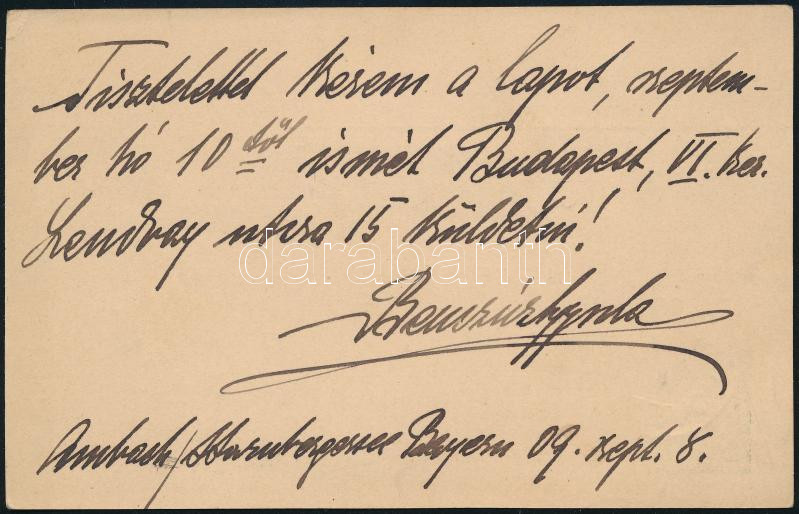 Tisztelettel kérem a lapot, szeptem-
ber hó 10től ismét Budapest, VI. ker.
Lendvay utcza 15 küldeni!
darabanth
Benczúr Gyula
Ambach / Starnbergersee Bayern 09. szept. 8.